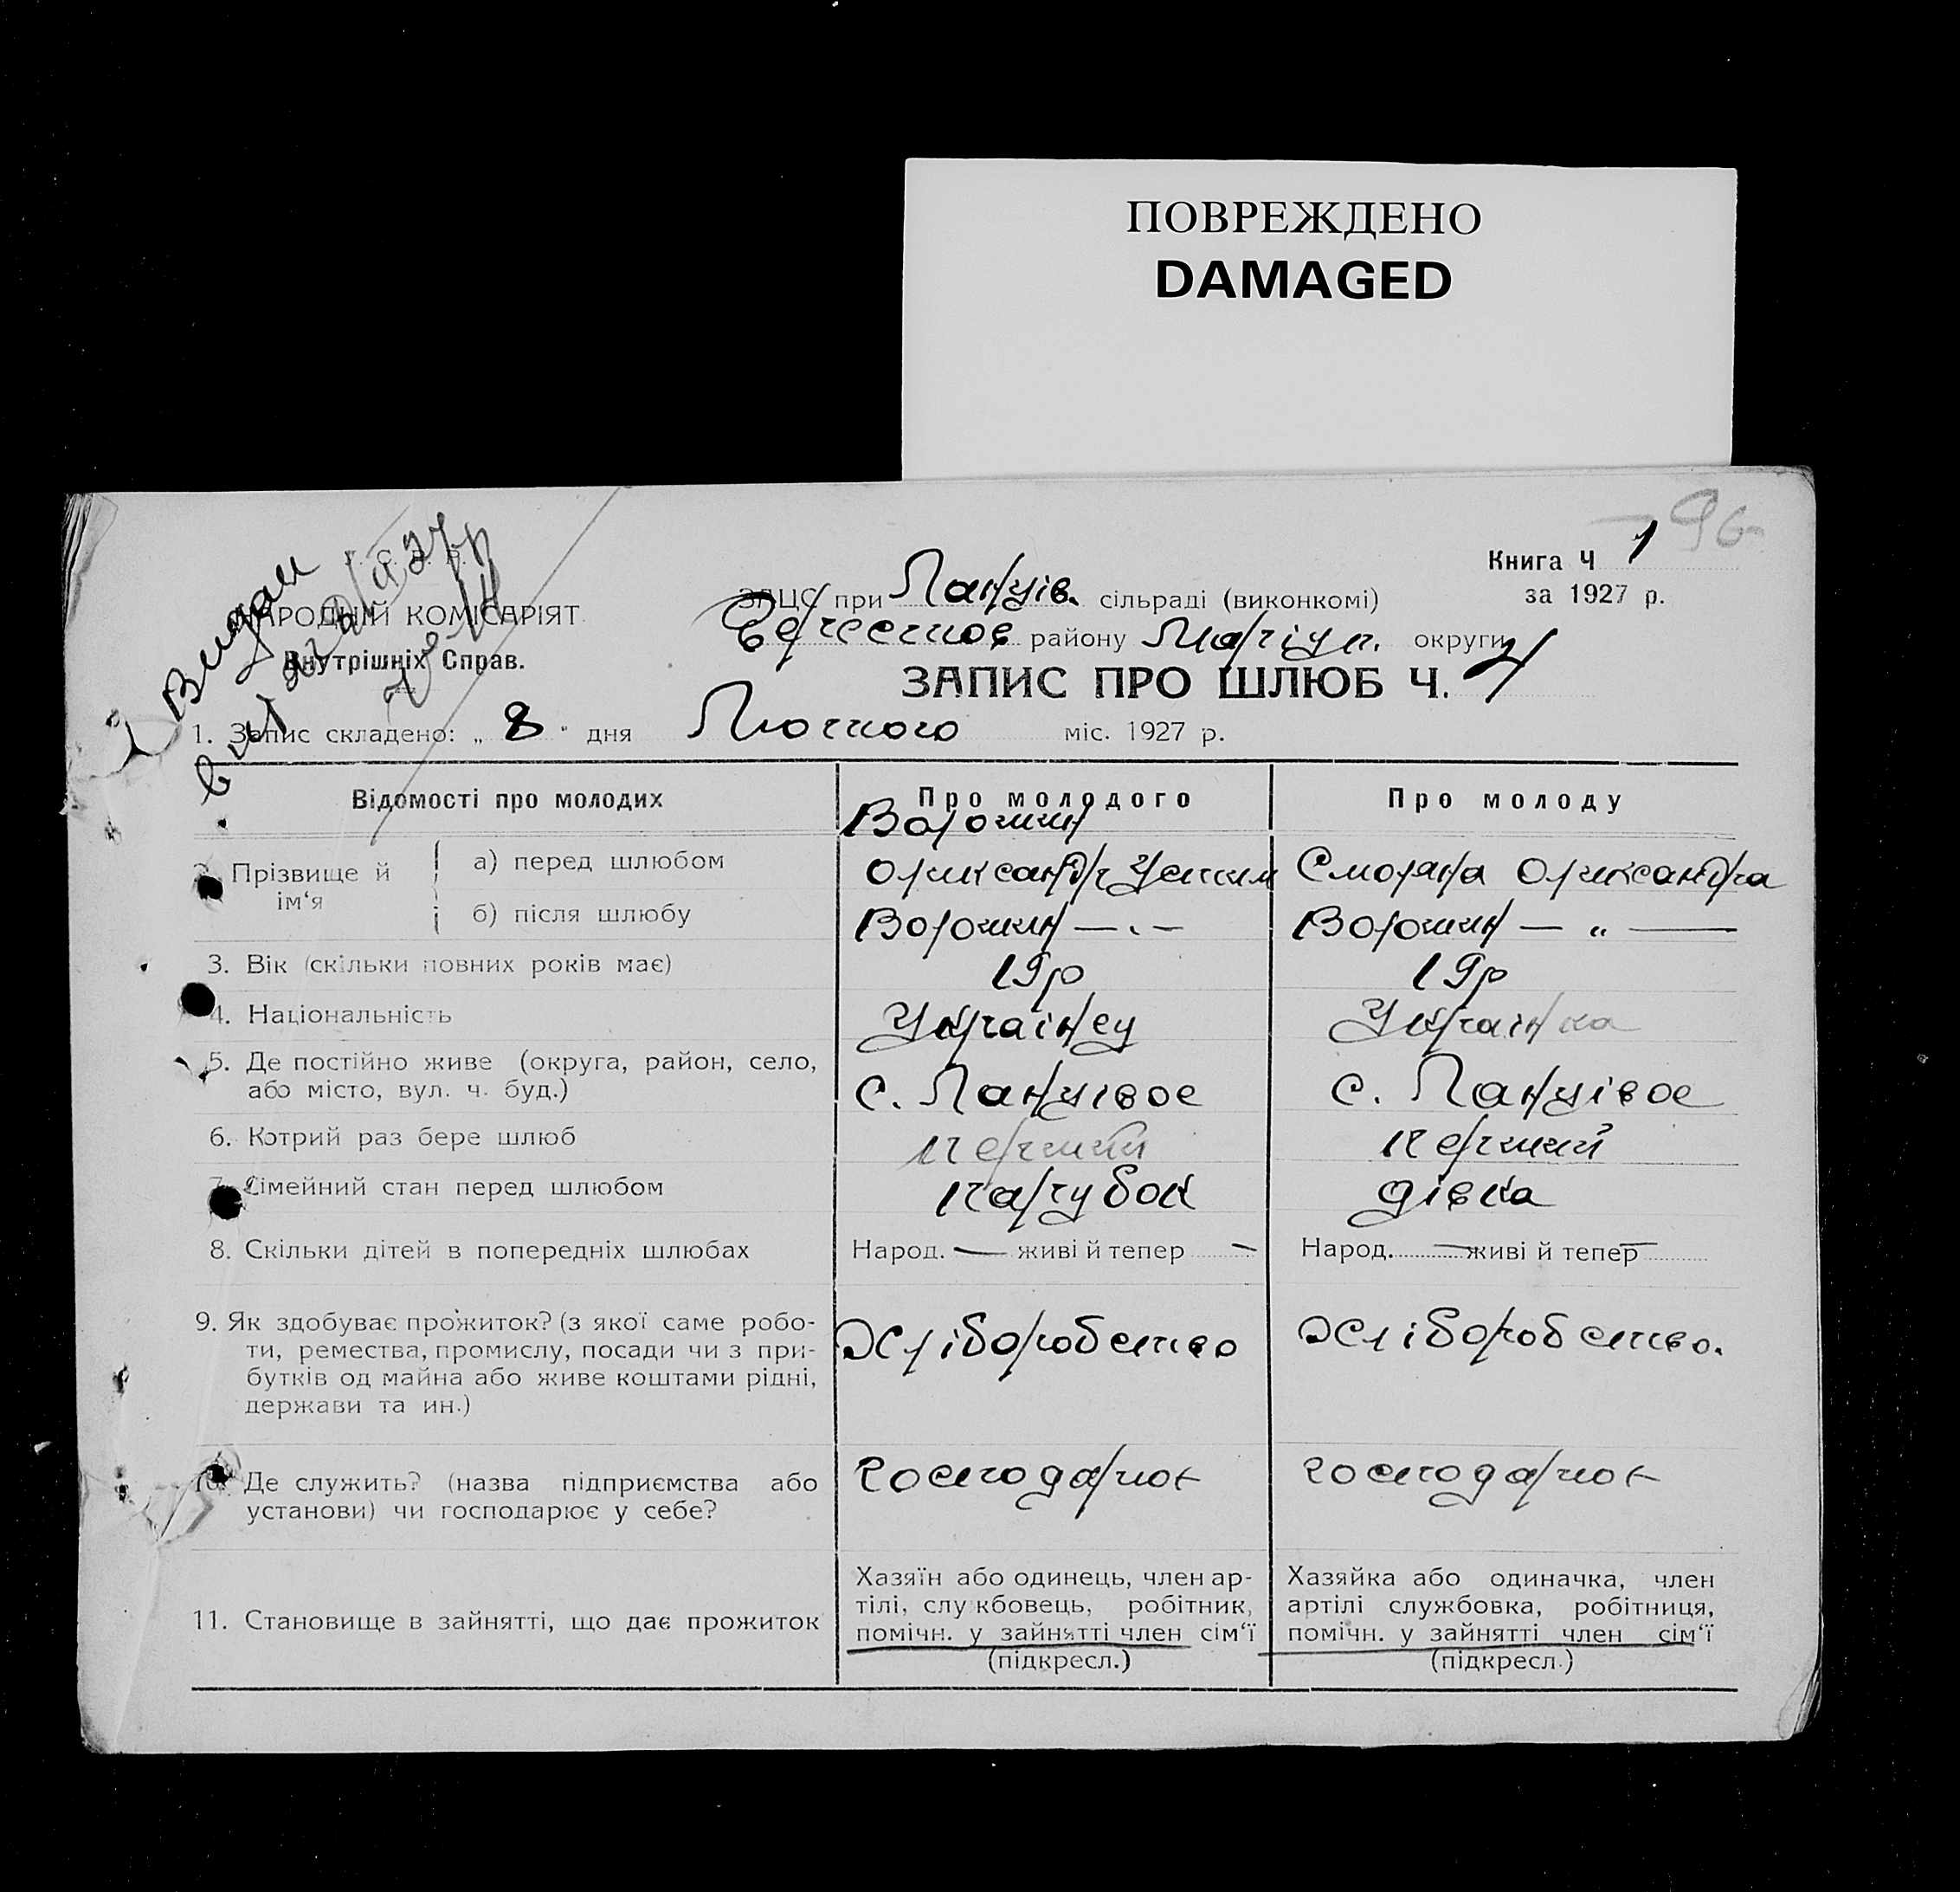 ПОВРЕЖДЕНО
DAMAGED
96
Книга Ч 1
за 1927 р.
У. С. Р. Р.
НАРОДНІЙ КОМІСАРІЯТ
Внутрішніх Справ.
Видан
ЗАЦС при Ланців. сільраді (виконкомі)
району Маріуп. округи
ЗАПИС ПРО ШЛЮБ Ч. 4
1. Запис складено: „ 8 " дня Лютого міс. 1927 р.
Відомості про молодих
Про молодого
Про молоду
2. Прізвище й ім'я
а) перед шлюбом
Ворошин
Оликсандр
Оликсандра
б) після шлюбу
Ворошин — „ —
Ворошин — „ —
3. Вік (скільки повних років має)
19р
19р
4. Національність
Українец
Українка
5. Де постійно живе (округа, район, село,
або місто, вул. ч. буд.)
с. Ланцівое
с. Ланцівое
6. Котрий раз бере шлюб
перший
перший
7. Сімейний стан перед шлюбом
парубок
дівка
8. Скільки дітей в попередніх шлюбах
Народ. — живі й тепер —
Народ. — живі й тепер —
9. Як здобуває прожиток? (з якої саме робо-
ти, ремества, промислу, посади чи з при-
бутків од майна або живе коштами рідні,
держави та ин.)
Хліборобство
Хліборобство.
10. Де служить? (назва підприємства або
установи) чи господарює у себе?
господарює
господарює
11. Становище в зайнятті, що дає прожиток
Хазяїн або одинець, член ар-
тілі, службовець, робітник,
помічн. у зайнятті член сім'ї
(підкресл.)
Хазяйка або одиначка, член
артілі службовка, робітниця,
помічн. у зайнятті член сім'ї
(підкресл.)